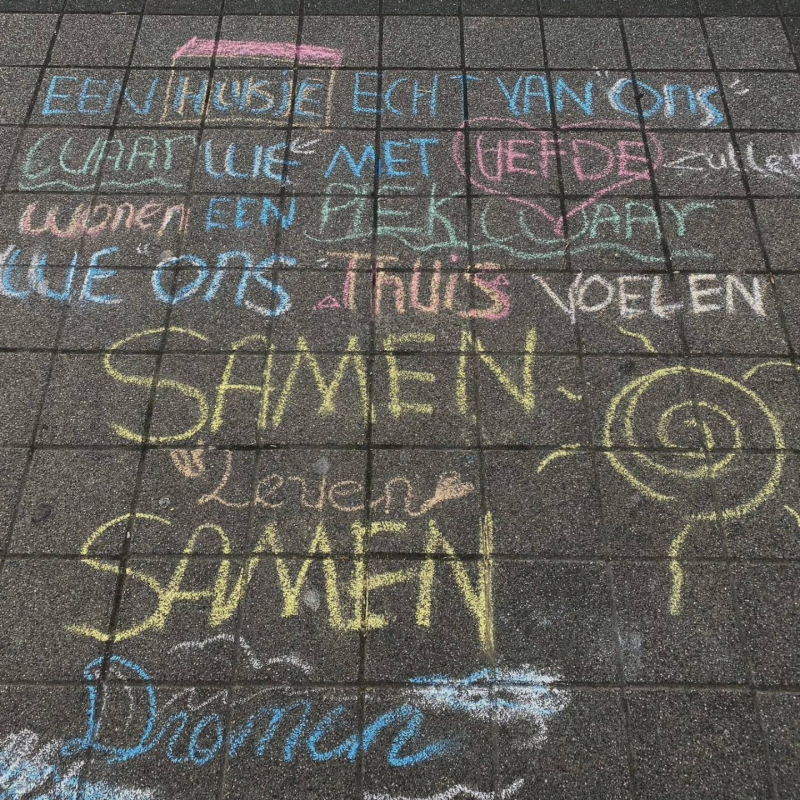 EEN HUISJE ECHT VAN "ONS"
WAAR WE MET LIEFDE ZULLEN
WONEN EEN PLEK WAAR
WE "ONS" THUIS VOELEN
SAMEN
"Leven"
SAMEN
Dromen